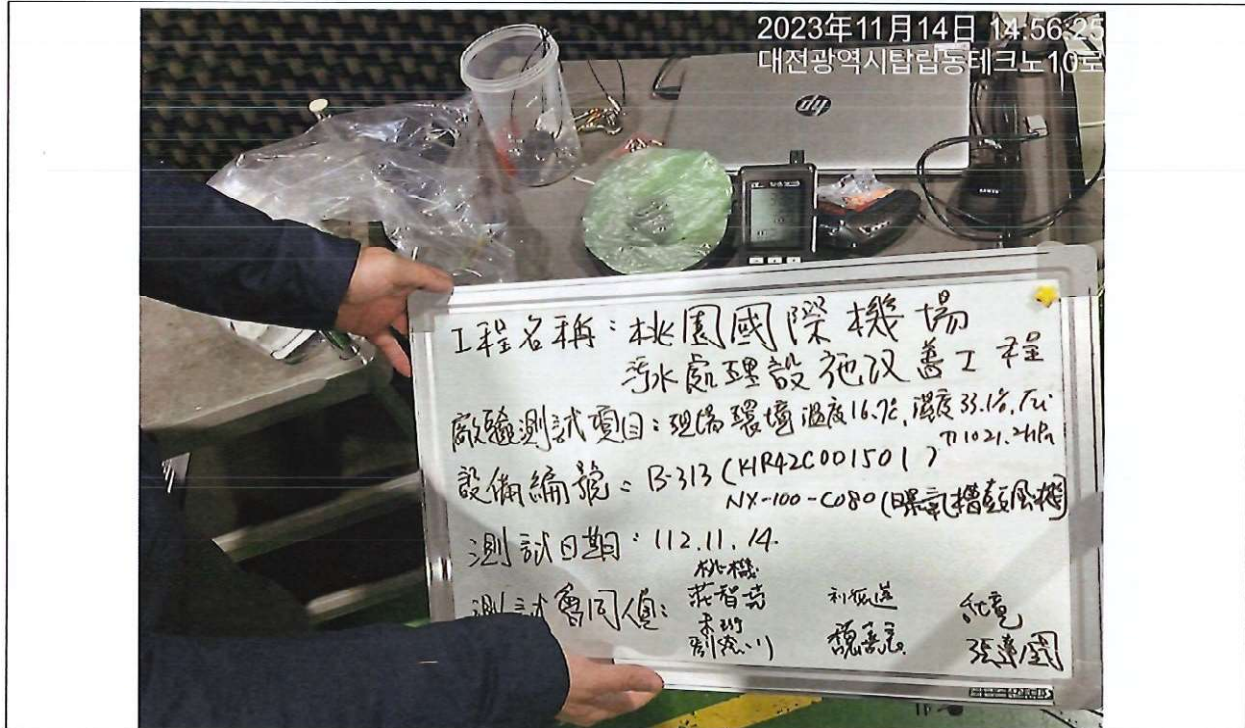 2023年11月14日 14:56:25
대전광역시탑립동테크노10로
hp
工程名稱：桃園國際機場
污水處理設施改善工程
廠驗測試項目：現場環境溫度16.7℃, 濕度33.1%,
1021.2hPa
設備編號：B-313 (K1R42C001501)
NX-100-C080 (曝氣槽鼓風機)
測試日期：112.11.14.
桃機
測試會同人員：莊智